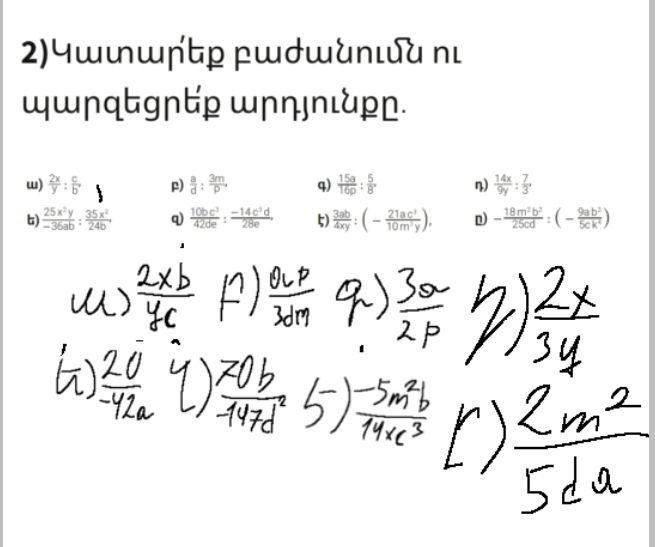 2)Կատար՛եք բաժանումն ու
պարզեցրե՛ք արդյունքը.
ա) 2x/y : c/b, բ) a/d : 3m/p, գ) 15a/16p : 5/8, դ) 14x/9y : 7/3,
ե) 25x²y/-36ab : 35x²/24b, զ) 10bc³/42de : -14c³d/28e, է) 3ab/4xy : (- 21ac³/10m²y), ը) - 18m²b²/25cd : (- 9ab²/5ck²)
ա) 2xb/yc բ) ap/3dm գ) 3a/2p դ) 2x/3y
ե) 20/-42a զ) 70b/-147d² է) -5m²b/14xc³ ը) 2m²/5da